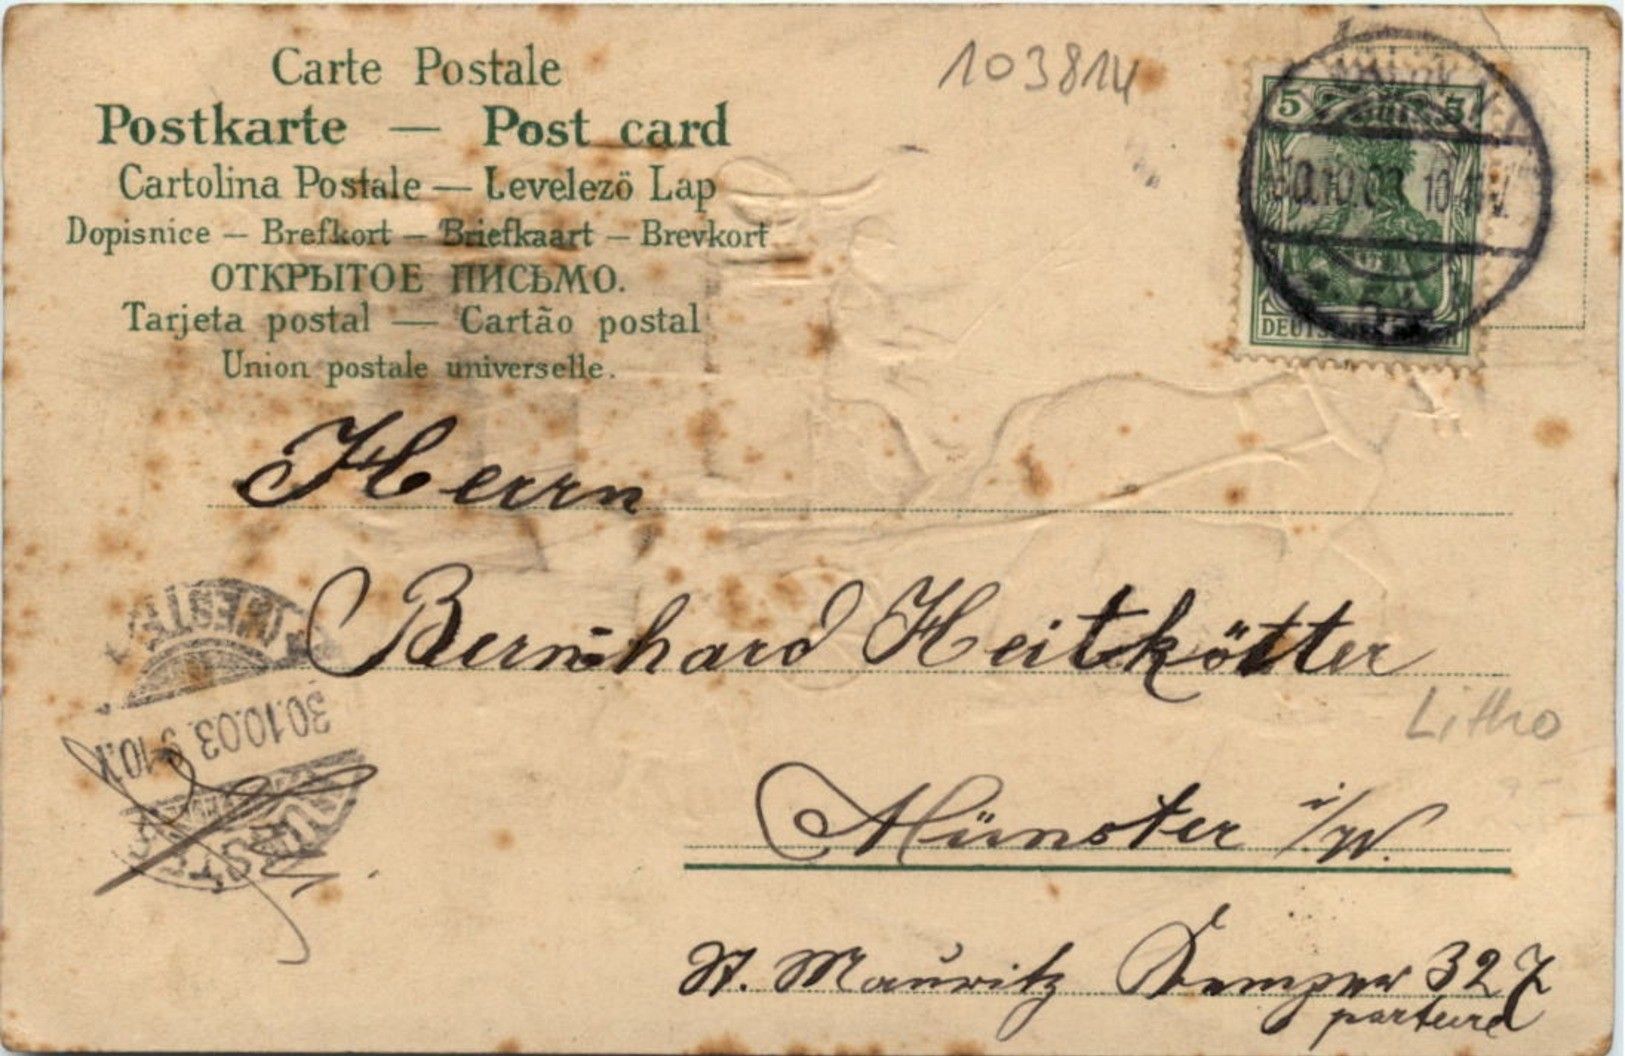 Carte Postale
Postkarte — Post card
Cartolina Postale — Levelezö Lap
Dopisnice — Brefkort — Briefkaart — Brevkort
ОТКРЫТОЕ ПИСЬМО.
Tarjeta postal — Cartão postal
Union postale universelle.
103814
5 5
30.10.03 10-11 V.
DEUTSCHES REICH
Herrn
Bernhard Heitkötter
(WESTF.)
30.10.03. 9-10.V.
MÜNSTER
Litho
Münster i/W.
St. Mauritz Kemper 32
parterre